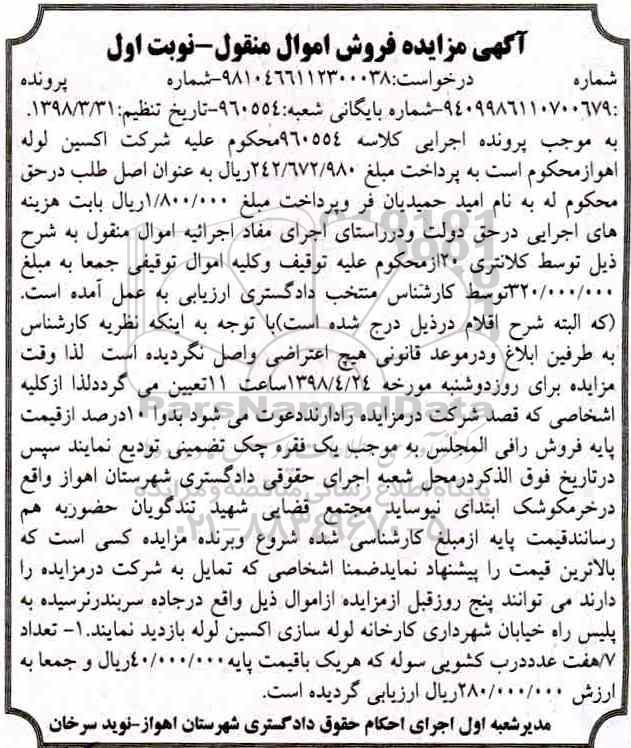 آگهی مزایده فروش اموال منقول-نوبت اول
شماره درخواست:۹۸۱۰۴۶۶۱۱۲۳۰۰۰۳۸-شماره پرونده
:۹۴۰۹۹۸۶۱۱۰۷۰۰۶۷۹-شماره بایگانی شعبه:۹۶۰۵۵۴-تاریخ تنظیم:۱۳۹۸/۳/۳۱.
به موجب پرونده اجرایی کلاسه ۹۶۰۵۵۴محکوم علیه شرکت اکسین لوله
اهوازمحکوم است به پرداخت مبلغ ۲۴۲/۶۷۲/۹۸۰ریال به عنوان اصل طلب درحق
محکوم له به نام امید حمیدیان فر وپرداخت مبلغ ۱/۸۰۰/۰۰۰ریال بابت هزینه
های اجرایی درحق دولت ودرراستای اجرای مفاد اجرائیه اموال منقول به شرح
ذیل توسط کلانتری ۲۰ازمحکوم علیه توقیف وکلیه اموال توقیفی جمعا به مبلغ
۳۲۰/۰۰۰/۰۰۰توسط کارشناس منتخب دادگستری ارزیابی به عمل آمده است.
(که البته شرح اقلام درذیل درج شده است)با توجه به اینکه نظریه کارشناس
به طرفین ابلاغ ودرموعد قانونی هیچ اعتراضی واصل نگردیده است لذا وقت
مزایده برای روزدوشنبه مورخه ۱۳۹۸/۴/۲۴ساعت ۱۱تعیین می گرددلذا ازکلیه
اشخاصی که قصد شرکت درمزایده رادارنددعوت می شود بدوا ۱۰درصد ازقیمت
پایه فروش رافی المجلس به موجب یک فقره چک تضمینی تودیع نمایند سپس
درتاریخ فوق الذکردرمحل شعبه اجرای حقوقی دادگستری شهرستان اهواز واقع
درخرمکوشک ابتدای نیوساید مجتمع قضایی شهید تندگویان حضوربه هم
رسانندقیمت پایه ازمبلغ کارشناسی شده شروع وبرنده مزایده کسی است که
بالاترین قیمت را پیشنهاد نمایدضمنا اشخاصی که تمایل به شرکت درمزایده را
دارند می توانند پنج روزقبل ازمزایده ازاموال ذیل واقع درجاده سربندرنرسیده به
پلیس راه خیابان شهرداری کارخانه لوله سازی اکسین لوله بازدید نمایند.۱- تعداد
۷/هفت عدددرب کشویی سوله که هریک باقیمت پایه۴۰/۰۰۰/۰۰۰ریال و جمعا به
ارزش ۲۸۰/۰۰۰/۰۰۰ریال ارزیابی گردیده است.
مدیرشعبه اول اجرای احکام حقوق دادگستری شهرستان اهواز-نوید سرخان
ParsNamadData
پایگاه اطلاع رسانی مناقصه و مزایده
۰۲۱-۸۸۳۴۹۶۷۰-۵